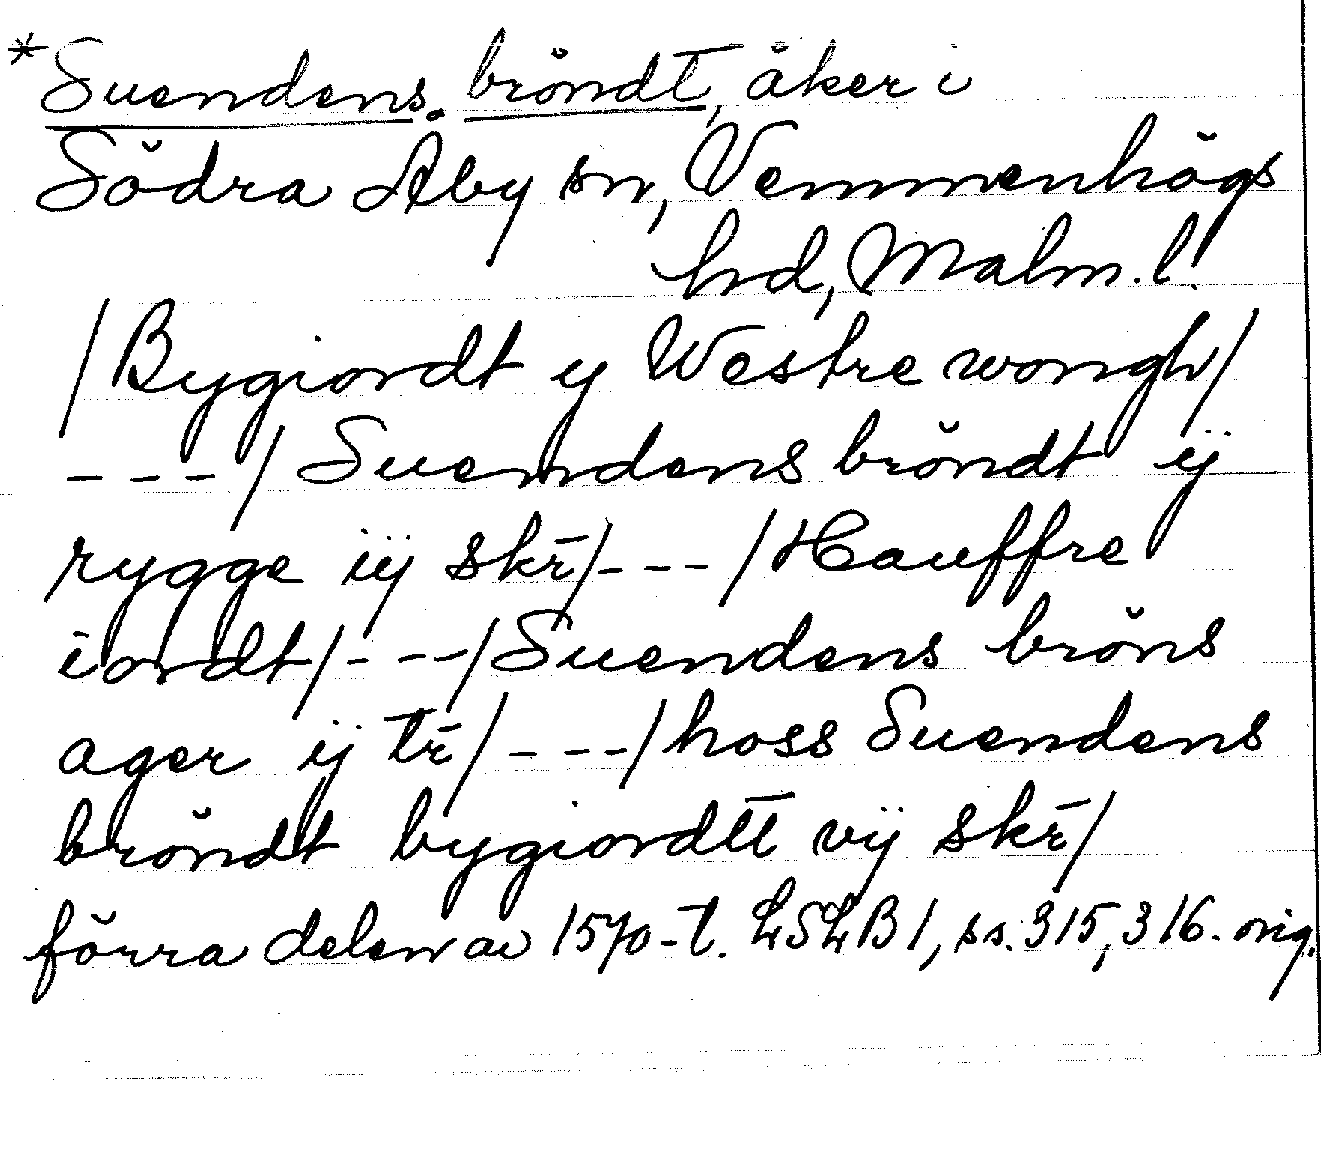 *Suendens. bröndt, åker i
Södra Åby sn, Vemmenhögs
hrd, Malm. l.
/Bygiordt y Westre wongh/
- - - / Suendens bröndt ÿ
rygge iÿ skr̄/- - - /Hauffre
iordt/- - -/Suendens bröns
ager ÿ tr̄/- - -/hoss Suendens
bröndt bygiordtt vÿ skr̄/
förra delen av 1570-t. LSLB1, ss. 315, 316. orig.